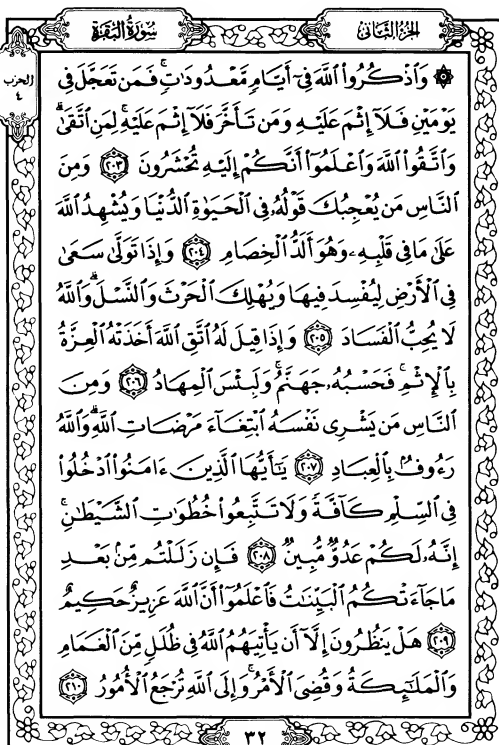 سُورَةُ البَقَرَةِ
الجُزءُ الثَّانِي
الحزب
٤
۞ وَٱذْكُرُوا۟ ٱللَّهَ فِىٓ أَيَّامٍ مَّعْدُودَٰتٍ ۚ فَمَن تَعَجَّلَ فِى
يَوْمَيْنِ فَلَآ إِثْمَ عَلَيْهِ وَمَن تَأَخَّرَ فَلَآ إِثْمَ عَلَيْهِ ۚ لِمَنِ ٱتَّقَىٰ ۗ
وَٱتَّقُوا۟ ٱللَّهَ وَٱعْلَمُوٓا۟ أَنَّكُمْ إِلَيْهِ تُحْشَرُونَ ٢٠٣ وَمِنَ
ٱلنَّاسِ مَن يُعْجِبُكَ قَوْلُهُۥ فِى ٱلْحَيَوٰةِ ٱلدُّنْيَا وَيُشْهِدُ ٱللَّهَ
عَلَىٰ مَا فِى قَلْبِهِۦ وَهُوَ أَلَدُّ ٱلْخِصَامِ ٢٠٤ وَإِذَا تَوَلَّىٰ سَعَىٰ
فِى ٱلْأَرْضِ لِيُفْسِدَ فِيهَا وَيُهْلِكَ ٱلْحَرْثَ وَٱلنَّسْلَ ۗ وَٱللَّهُ
لَا يُحِبُّ ٱلْفَسَادَ ٢٠٥ وَإِذَا قِيلَ لَهُ ٱتَّقِ ٱللَّهَ أَخَذَتْهُ ٱلْعِزَّةُ
بِٱلْإِثْمِ ۚ فَحَسْبُهُۥ جَهَنَّمُ ۚ وَلَبِئْسَ ٱلْمِهَادُ ٢٠٦ وَمِنَ
ٱلنَّاسِ مَن يَشْرِى نَفْسَهُ ٱبْتِغَآءَ مَرْضَاتِ ٱللَّهِ ۗ وَٱللَّهُ
رَءُوفٌۢ بِٱلْعِبَادِ ٢٠٧ يَٰٓأَيُّهَا ٱلَّذِينَ ءَامَنُوا۟ ٱدْخُلُوا۟
فِى ٱلسِّلْمِ كَآفَّةً وَلَا تَتَّبِعُوا۟ خُطُوَٰتِ ٱلشَّيْطَٰنِ ۚ
إِنَّهُۥ لَكُمْ عَدُوٌّ مُّبِينٌ ٢٠٨ فَإِن زَلَلْتُم مِّنۢ بَعْدِ
مَا جَآءَتْكُمُ ٱلْبَيِّنَٰتُ فَٱعْلَمُوٓا۟ أَنَّ ٱللَّهَ عَزِيزٌ حَكِيمٌ
٢٠٩ هَلْ يَنظُرُونَ إِلَّآ أَن يَأْتِيَهُمُ ٱللَّهُ فِى ظُلَلٍ مِّنَ ٱلْغَمَامِ
وَٱلْمَلَٰٓئِكَةُ وَقُضِىَ ٱلْأَمْرُ ۚ وَإِلَى ٱللَّهِ تُرْجَعُ ٱلْأُمُورُ ٢١٠
٣٢